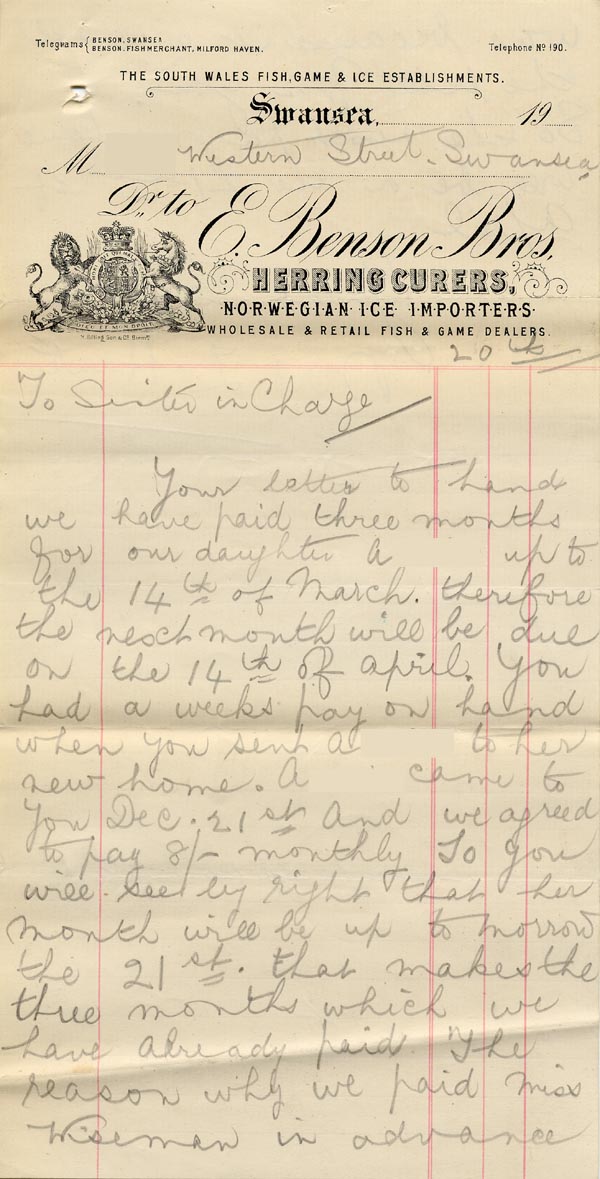 Telegrams { BENSON, SWANSEA
BENSON, FISHMERCHANT, MILFORD HAVEN.
Telephone No 190.
THE SOUTH WALES FISH, GAME & ICE ESTABLISHMENTS.
Swansea, 19
M Western Street. Swansea
Dr. to E. Benson Bros,
HERRING CURERS,
NORWEGIAN ICE IMPORTERS
WHOLESALE & RETAIL FISH & GAME DEALERS.
20th
To Sister in Charge
Your letter to hand
we have paid three months
for our daughter A up to
the 14th of March. therefore
the next month will be due
on the 14th of april. You
had a weeks pay on hand
when you sent A to her
new home. A came to
you Dec. 21st and we agreed
to pay 8/- monthly So you
will see by right that her
month will be up to morrow
the 21st. that makes the
three months which we
have already paid. The
reason why we paid Miss
Wiseman in advance